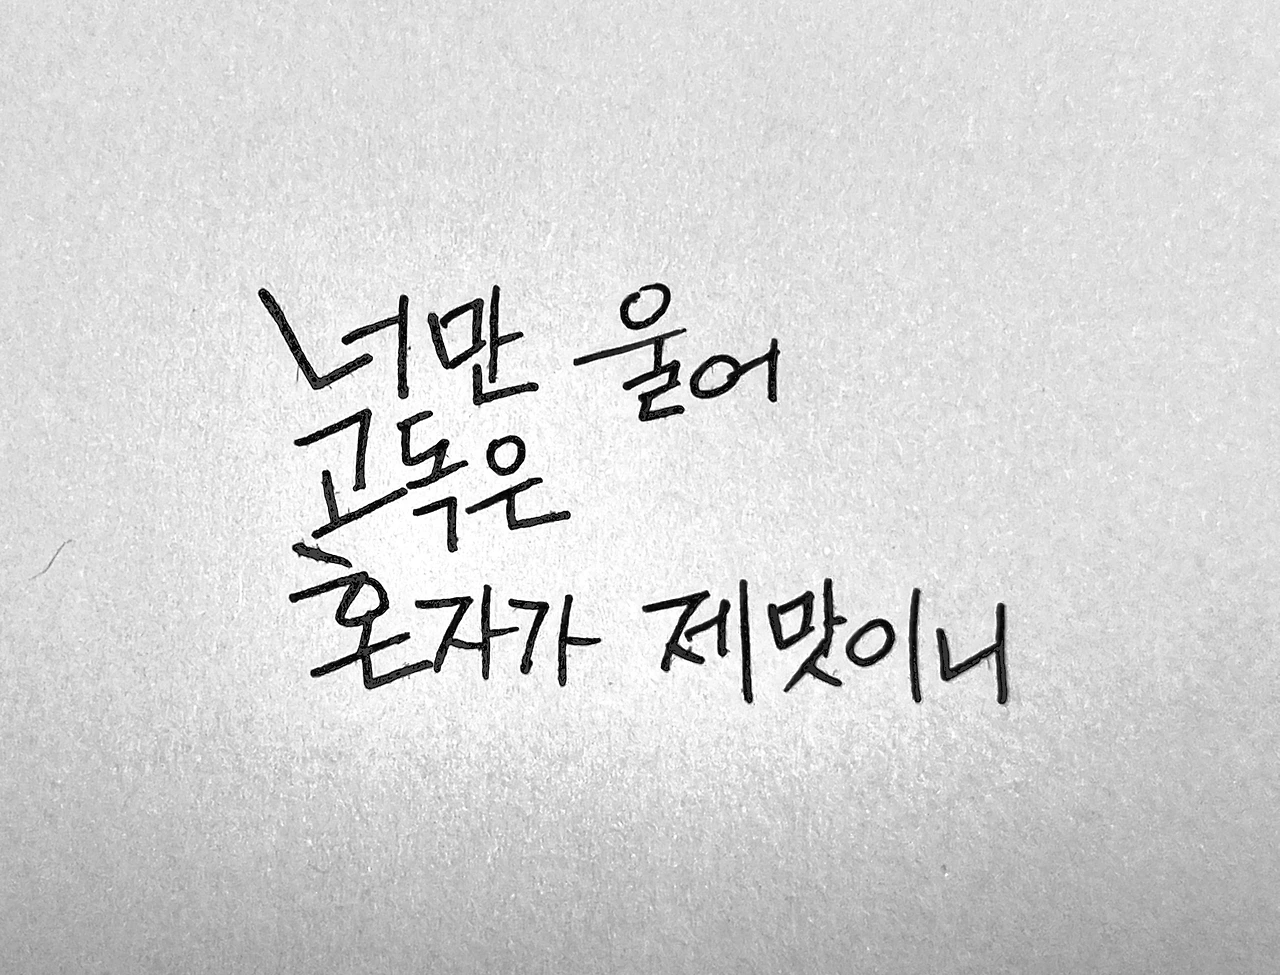 너만 울어
고독은
혼자가 제맛이니